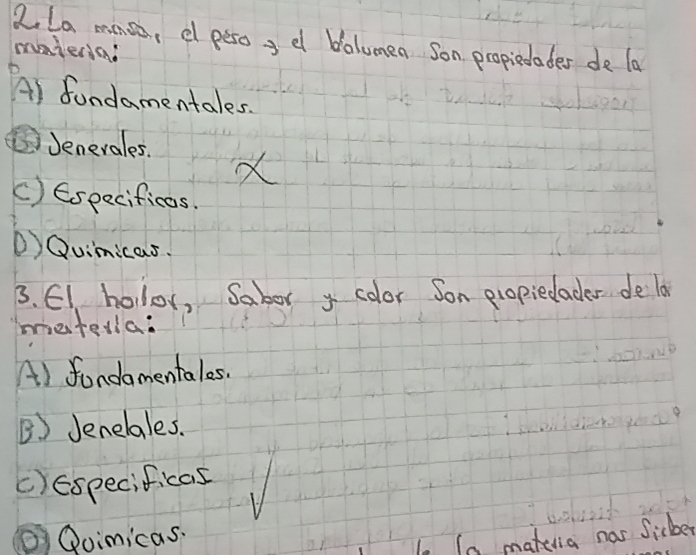 2. La masa, el peso y el Bolumen Son propiedades de la
materia:
A) fundamentales.
B) Jenerales.
C) Especificas.
D) Quimicas.
3. El holor, Sabor y color Son propiedades de la
materia:
A) fundamentales.
B) Jenelales.
C) Especificas
D) Quimicas.
la materia nos